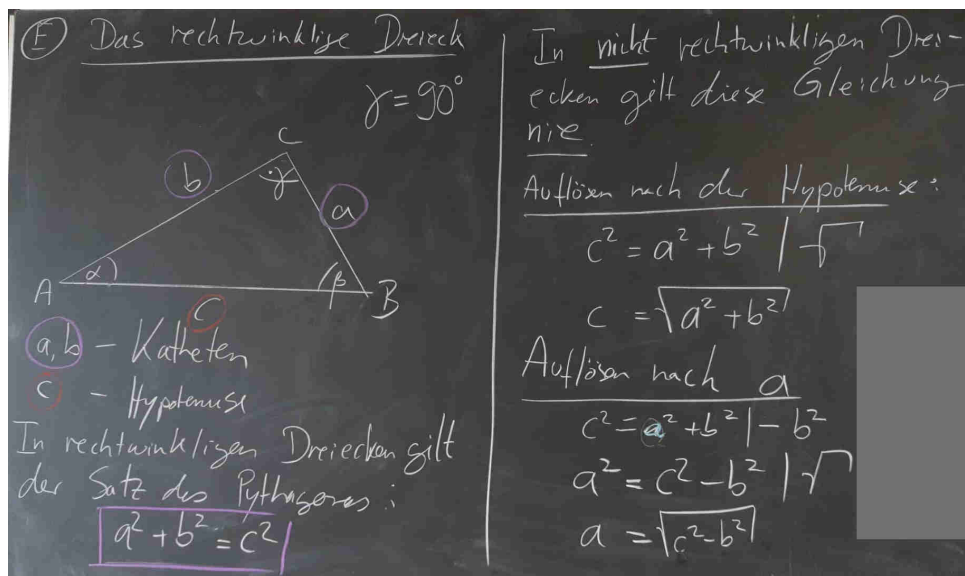 E Das rechtwinklige Dreieck
γ = 90°
C
b
γ
a
α
β
A
B
c
a, b – Katheten
c – Hypotenuse
In rechtwinkligen Dreiecken gilt
der Satz des Pythagoras :
a² + b² = c²
In nicht rechtwinkligen Drei-
ecken gilt diese Gleichung
nie.
Auflösen nach der Hypotenuse :
c² = a² + b² | √
c = √a² + b²
Auflösen nach a
c² = a² + b² | – b²
a² = c² – b² | √
a = √c² – b²